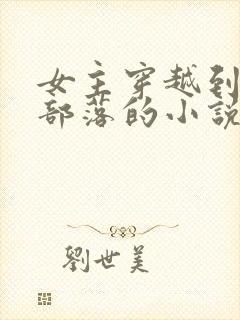 女主穿越到
部落的小説
劉世美